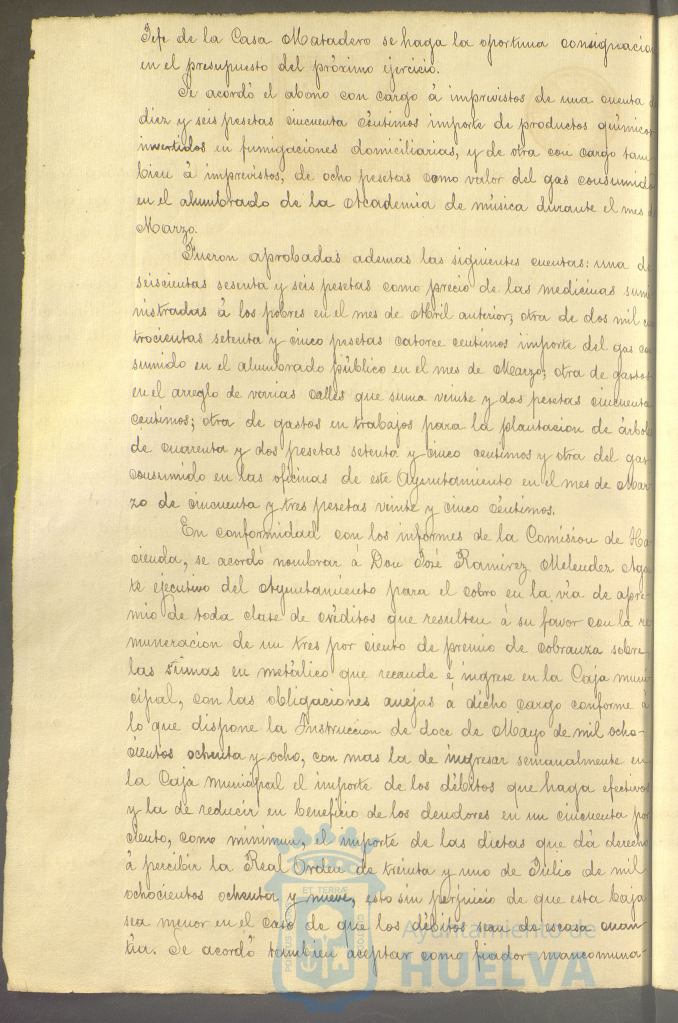 Jefe de la Casa Matadero se haga la oportuna consignacio
en el presupuesto del próximo ejercicio.
Se acordó el abono con cargo á imprevistos de una cuenta d
diez y seis pesetas cincuenta céntimos importe de productos químicos
invertidos en fumigaciones domiciliarias, y de otra con cargo tam
bien á imprevistos, de ocho pesetas como valor del gas consumido
en el alumbrado de la Academia de música durante el mes d
Marzo.
Fueron aprobadas ademas las siguientes cuentas: una de
seiscientas sesenta y seis pesetas como precio de las medicinas sumi
nistradas á los pobres en el mes de Abril anterior; otra de dos mil cua
trocientas setenta y cinco pesetas catorce centimos importe del gas con
sumido en el alumbrado público en el mes de Marzo; otra de gastos
en el arreglo de varias calles que suma veinte y dos pesetas cincuenta
centimos; otra de gastos en trabajos para la plantacion de árbole
de cuarenta y dos pesetas setenta y cinco centimos y otra del gas
consumido en las oficinas de este Ayuntamiento en el mes de Mar
zo de cincuenta y tres pesetas veinte y cinco céntimos.
En conformidad con los informes de la Comision de Ha
cienda, se acordó nombrar á Don José Ramirez Melendez Agen
te ejecutivo del Ayuntamiento para el cobro en la vía de apre
mio de toda clase de créditos que resulten á su favor con la re
muneracion de un tres por ciento de premio de cobranza sobre
las sumas en metálico que recaude é ingrese en la Caja muni
cipal, con las obligaciones anejas á dicho cargo conforme á
lo que dispone la Instruccion de doce de Mayo de mil ocho-
cientos ochenta y ocho, con mas la de ingresar semanalmente en
la Caja municipal el importe de los débitos que haga efectivos
y la de reducir en beneficio de los deudores en un cincuenta por
ciento, como minimun, el importe de las dietas que dá derecho
á percibir la Real Orden de treinta y uno de Julio de mil
ochocientos ochenta y nueve, esto sin perjuicio de que esta baja
sea menor en el caso de que los débitos sean de escasa cuan
tía. Se acordó tambien aceptar como fiador mancomuna-
ET TERRÆ
PORTUS
CUSTODIA
Ayuntamiento de
HUELVA